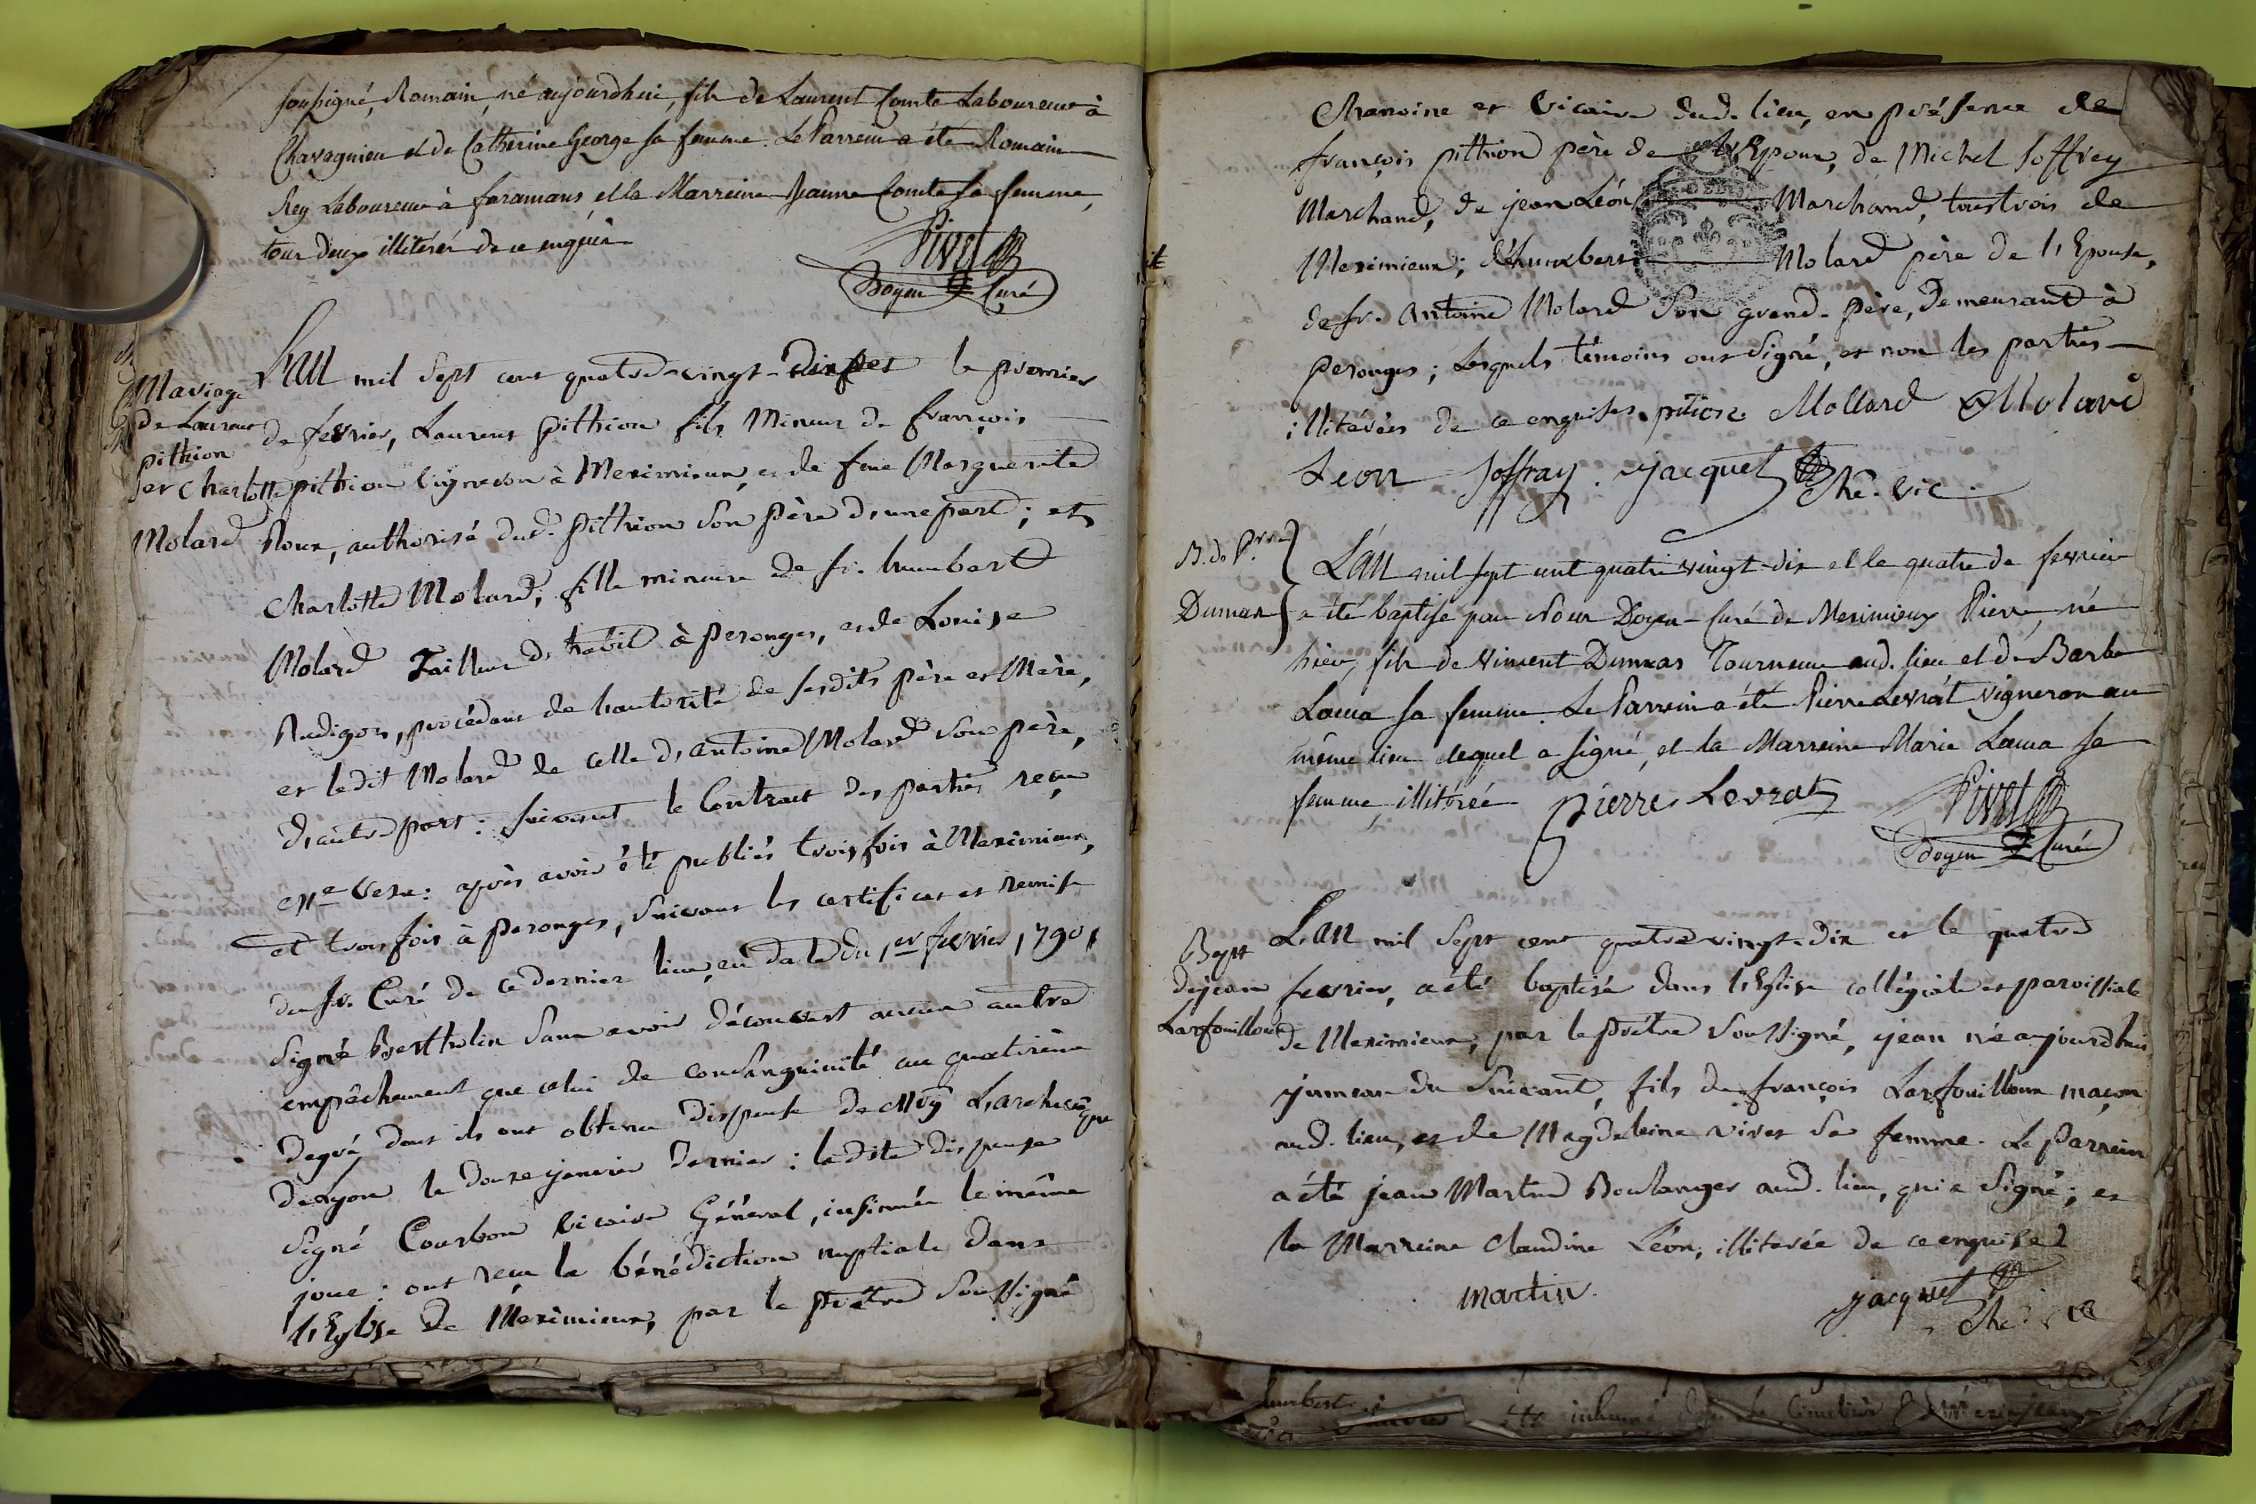 soussigné, Romain, né aujourdhui, fils de Laurent Comte Laboureur à
Chavagnieu et de Catherine George sa femme. Le Parrein a été Romain
Rey Laboureur à faramans, et la Marreine Jeanne Comte sa femme,
tous deux illitérés de ce enquis
Pivet
Doyen Curé
Mariage
de Laurent
pithion
et Charlotte
Molard
L'an mil sept cent quatre-vingt-dix et le premier
de février, Laurent pithion fils Mineur de françois
pithion vigneron à Meximieux, et de feue Marguerite
Roux, authorisé dud. pithion son père d'une part; et
Charlotte Molard, fille mineure de sr. humbert
Molard Tailleur d'habit à perouges, et de Louise
Rudigoz, procédant de l'autorité de sesdits père et Mère,
et ledit Molard de celle d'antoine Molard son père,
d'autre part: suivant le Contrat des parties reçu
Me Vezu: après avoir été publiés trois fois à Meximieux,
et trois fois à perouges, suivant les certificat et remise
du sr. Curé de ce dernier lieu, en date du 1er février 1790,
signé Bertholin sans avoir découvert aucun autre
empêchement que celui de consanguinité au quatrième
degré, dont ils ont obtenu dispense de Mgr L'archevêque
de Lyon le douze janvier dernier: ladite dispense
signé Courbon vicaire Général, insinuée le même
jour: ont reçu la bénédiction nuptiale dans
l'Eglise de Meximieux, par le prêtre soussigné
Chanoine et Vicaire dud. lieu, en présence de
françois pithion père de l'Epoux, de Michel Joffrey
Marchand, de jean Léon Marchand, tous trois de
Meximieux; d'humbert Molard père de l'Epouse,
de sr. Antoine Molard son grand-père, demeurant à
perouges; Lesquels témoins ont signé, et non les parties
illitérées de ce enquises. pition Mollard Molard
Leon Joffray. jacquet
Che. vic.
B. de Prre
Dumas
L'an mil sept cent quatre vingt-dix et le quatre de fevrier
a été baptisé par Nous Doyen-Curé de Meximieux Pierre, né
hier, fils de Vincent Dumas Tourneur aud. lieu et de Barbe
Lama sa femme. Le Parrein a été Pierre Levrat vigneron au
même lieu lequel a signé, et la Marreine Marie Lama sa
femme, illitérée pierre Levrat
Pivet
doyen Curé
Bapt
de jean
Larfouilloux
L'an mil sept cent quatre vingt-dix et le quatre
fevrier, a été baptisé dans l'Eglise collégiale et paroissiale
de Meximieux, par le prêtre soussigné, jean né aujourdhui
jumeau du suivant, fils de françois Larfouilloux maçon
aud. lieu, et de Magdeleine vivet sa femme. Le parrein
a été jean Martin Boulanger aud. lieu, qui a signé; et
la Marreine Claudine Léon, illiterée de ce enquise
martin.
jacquet
Che.